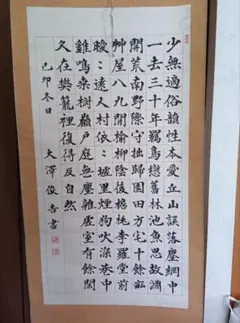 少無適俗韻性本愛丘山誤落塵網中
一去三十年羈鳥戀舊林池魚思故淵
開荒南野際守拙歸園田方宅十餘畝
艸屋八九間榆柳陰後檐桃李羅堂前
曖〻遠人村依〻墟里煙狗吠深巷中
雞鳴桑樹巔戶庭無塵雜虛室有餘閑
久在樊籠裡復得反自然
己卯冬日 大澤俊吉書